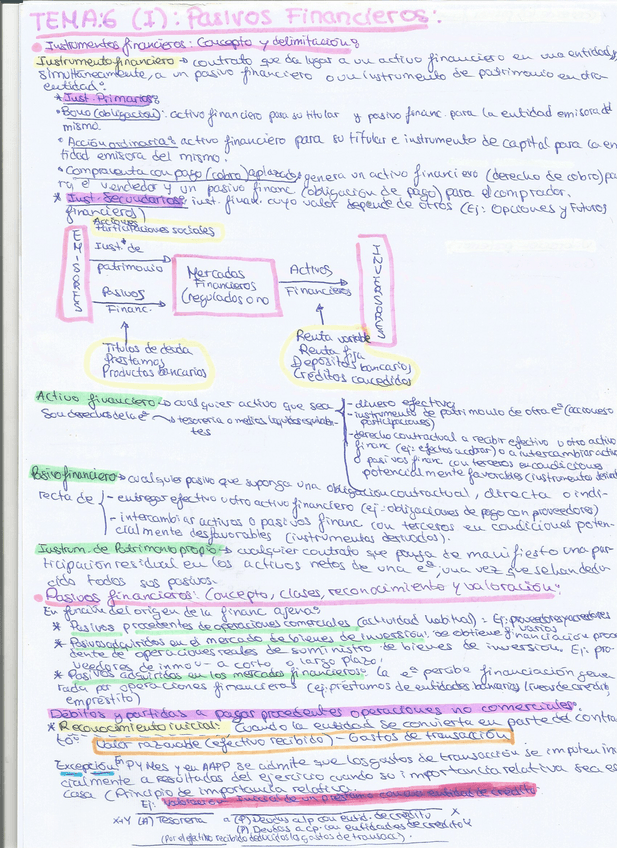 TEMA:6 (I): Pasivos Financieros:
Instrumentos financieros: Concepto y delimitación:
Instrumento financiero → contrato que da lugar a un activo financiero en una entidad y,
simultáneamente, a un pasivo financiero o un instrumento de patrimonio en otra
entidad:
* Inst. Primarios:
• Bono (obligación): activo financiero para su titular y pasivo financ. para la entidad emisora del
mismo.
• Acción ordinaria: activo financiero para su titular e instrumento de capital para la en
tidad emisora del mismo.
• Compraventa con pago (cobro) aplazado: genera un activo financiero (derecho de cobro) pa
ra el vendedor y un pasivo financ (obligación de pago) para el comprador.
* Inst. Secundarios: inst. finan. cuyo valor depende de otros (Ej: Opciones y Futuros
financieros)
Acciones
Participaciones sociales
EMISORES
Inst. de
patrimonio
Pasivos
Financ.
Mercados
Financieros
(regulados o no
Activos
Financieros
INVERSORES
Títulos de deuda
Préstamos
Productos bancarios
Renta variable
Renta fija
Depósitos bancarios
Créditos concedidos
Activo financiero → cualquier activo que sea
Son derechos de la eª → tesorería o medios líquidos equivalen-
tes
- dinero efectivo
- instrumento de patrimonio de otra eª (acciones o
participaciones)
- derecho contractual a recibir efectivo u otro activo
financ (ej: efectos a cobrar) o a intercambiar activos
o pasivos financ con terceros en condiciones
potencialmente favorables (instrumentos
Pasivo financiero → cualquier pasivo que suponga una obligación contractual, directa o indi-
recta de
- entregar efectivo u otro activo financiero (ej: obligaciones de pago con proveedores)
- intercambiar activos o pasivos financ con terceros en condiciones poten-
cialmente desfavorables (instrumentos derivados).
Instrum. de Patrimonio propio → cualquier contrato que ponga de manifiesto una par-
ticipación residual en los activos netos de una eª, una vez que se han dedu-
cido todos sus pasivos.
Pasivos financieros: Concepto, clases, reconocimiento y valoración:
En función del origen de la financ ajena:
* Pasivos procedentes de operaciones comerciales (actividad habitual): Ej: proveedores y acreedores
varios
* Pasivos adquiridos en el mercado de bienes de inversión: se obtiene financiación proce
dente de operaciones reales de suministro de bienes de inversión. Ej: pro-
veedores de inmov- a corto o largo plazo,
* Pasivos adquiridos en los mercados financieros: la eª percibe financiación gene
rada por operaciones financieras (ej: préstamos de entidades bancarias (línea de crédito,
empréstito)
Débitos y partidas a pagar procedentes operaciones no comerciales:
* Reconocimiento inicial: Cuando la entidad se convierta en parte del contra
to:
Valor razonable (efectivo recibido) - Gastos de transacción
Excepción: En PYMES y en AAPP se admite que los gastos de transacción se imputen ini
cialmente a resultados del ejercicio cuando su importancia relativa sea es
casa (Principio de importancia relativa.
Ej: Valoración inicial de un préstamo con una entidad de crédito
X+Y (A) Tesorería a (P) Deudas a lp con entid. de crédito X
(P) Deudas a cp. con entidades de crédito Y
(Por el efectivo recibido deducidos los gastos de transacc).